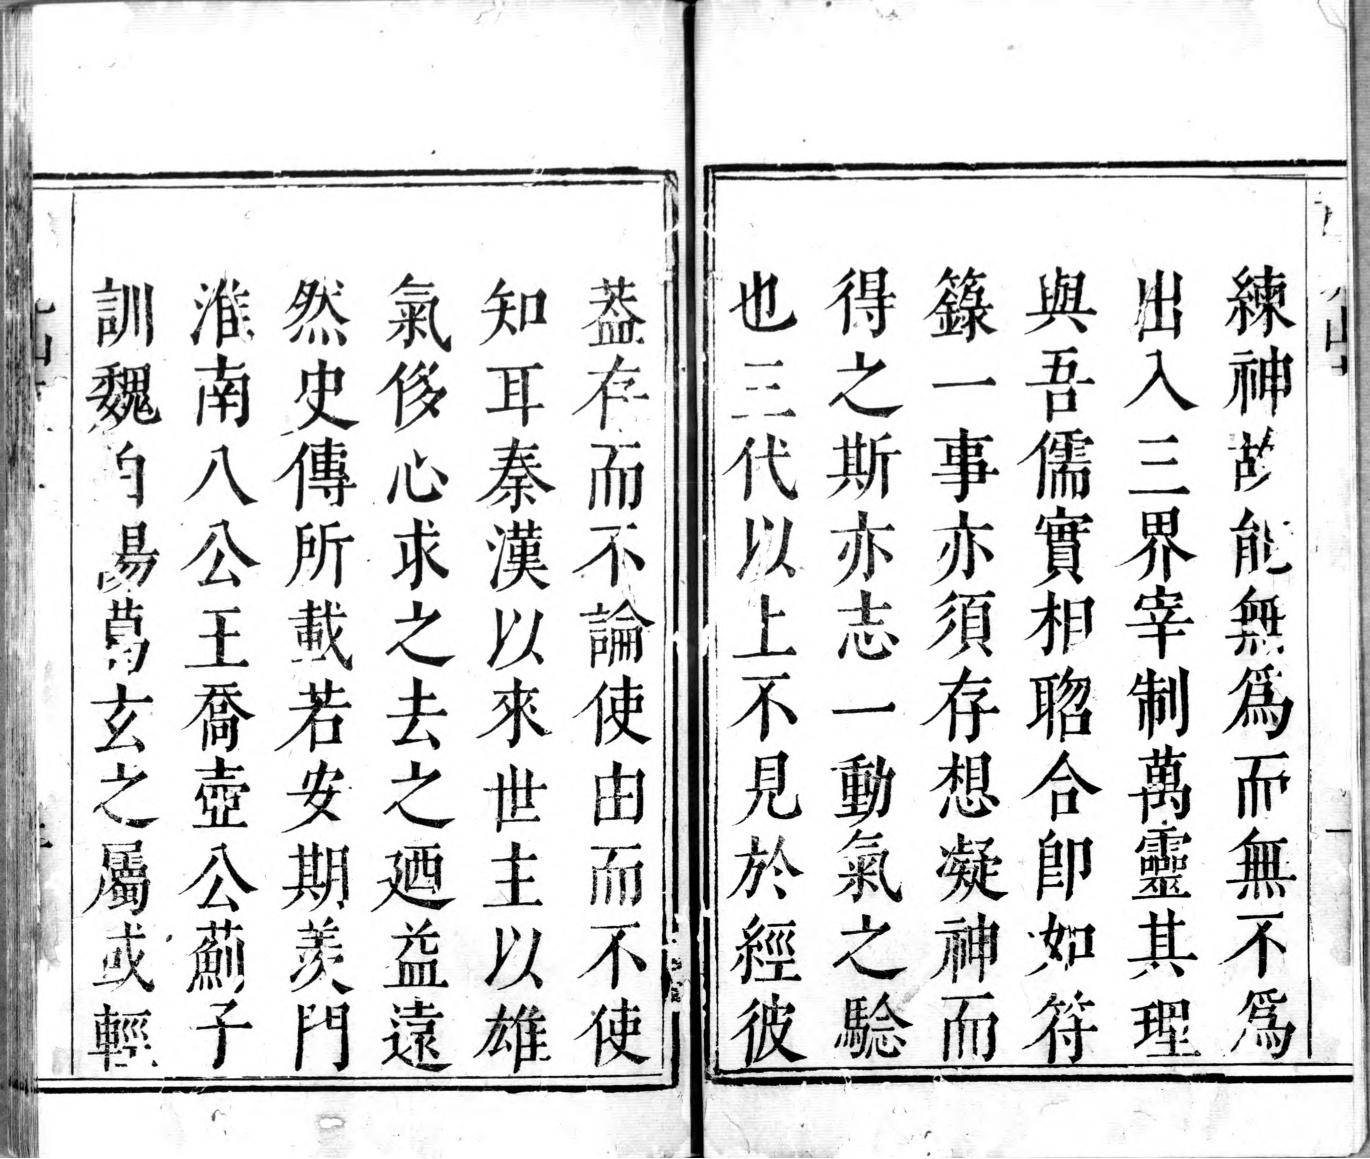 練神故能無爲而無不爲
出入三界宰制萬靈其理
與吾儒實相脗合卽如符
籙一事亦須存想凝神而
得之斯亦志一動氣之驗
也三代以上不見於經彼
葢存而不論使由而不使
知耳秦漢以來世主以雄
氣侈心求之去之廼益遠
然史傳所載若安期羨門
淮南八公王喬壺公薊子
訓魏伯陽葛玄之屬或輕